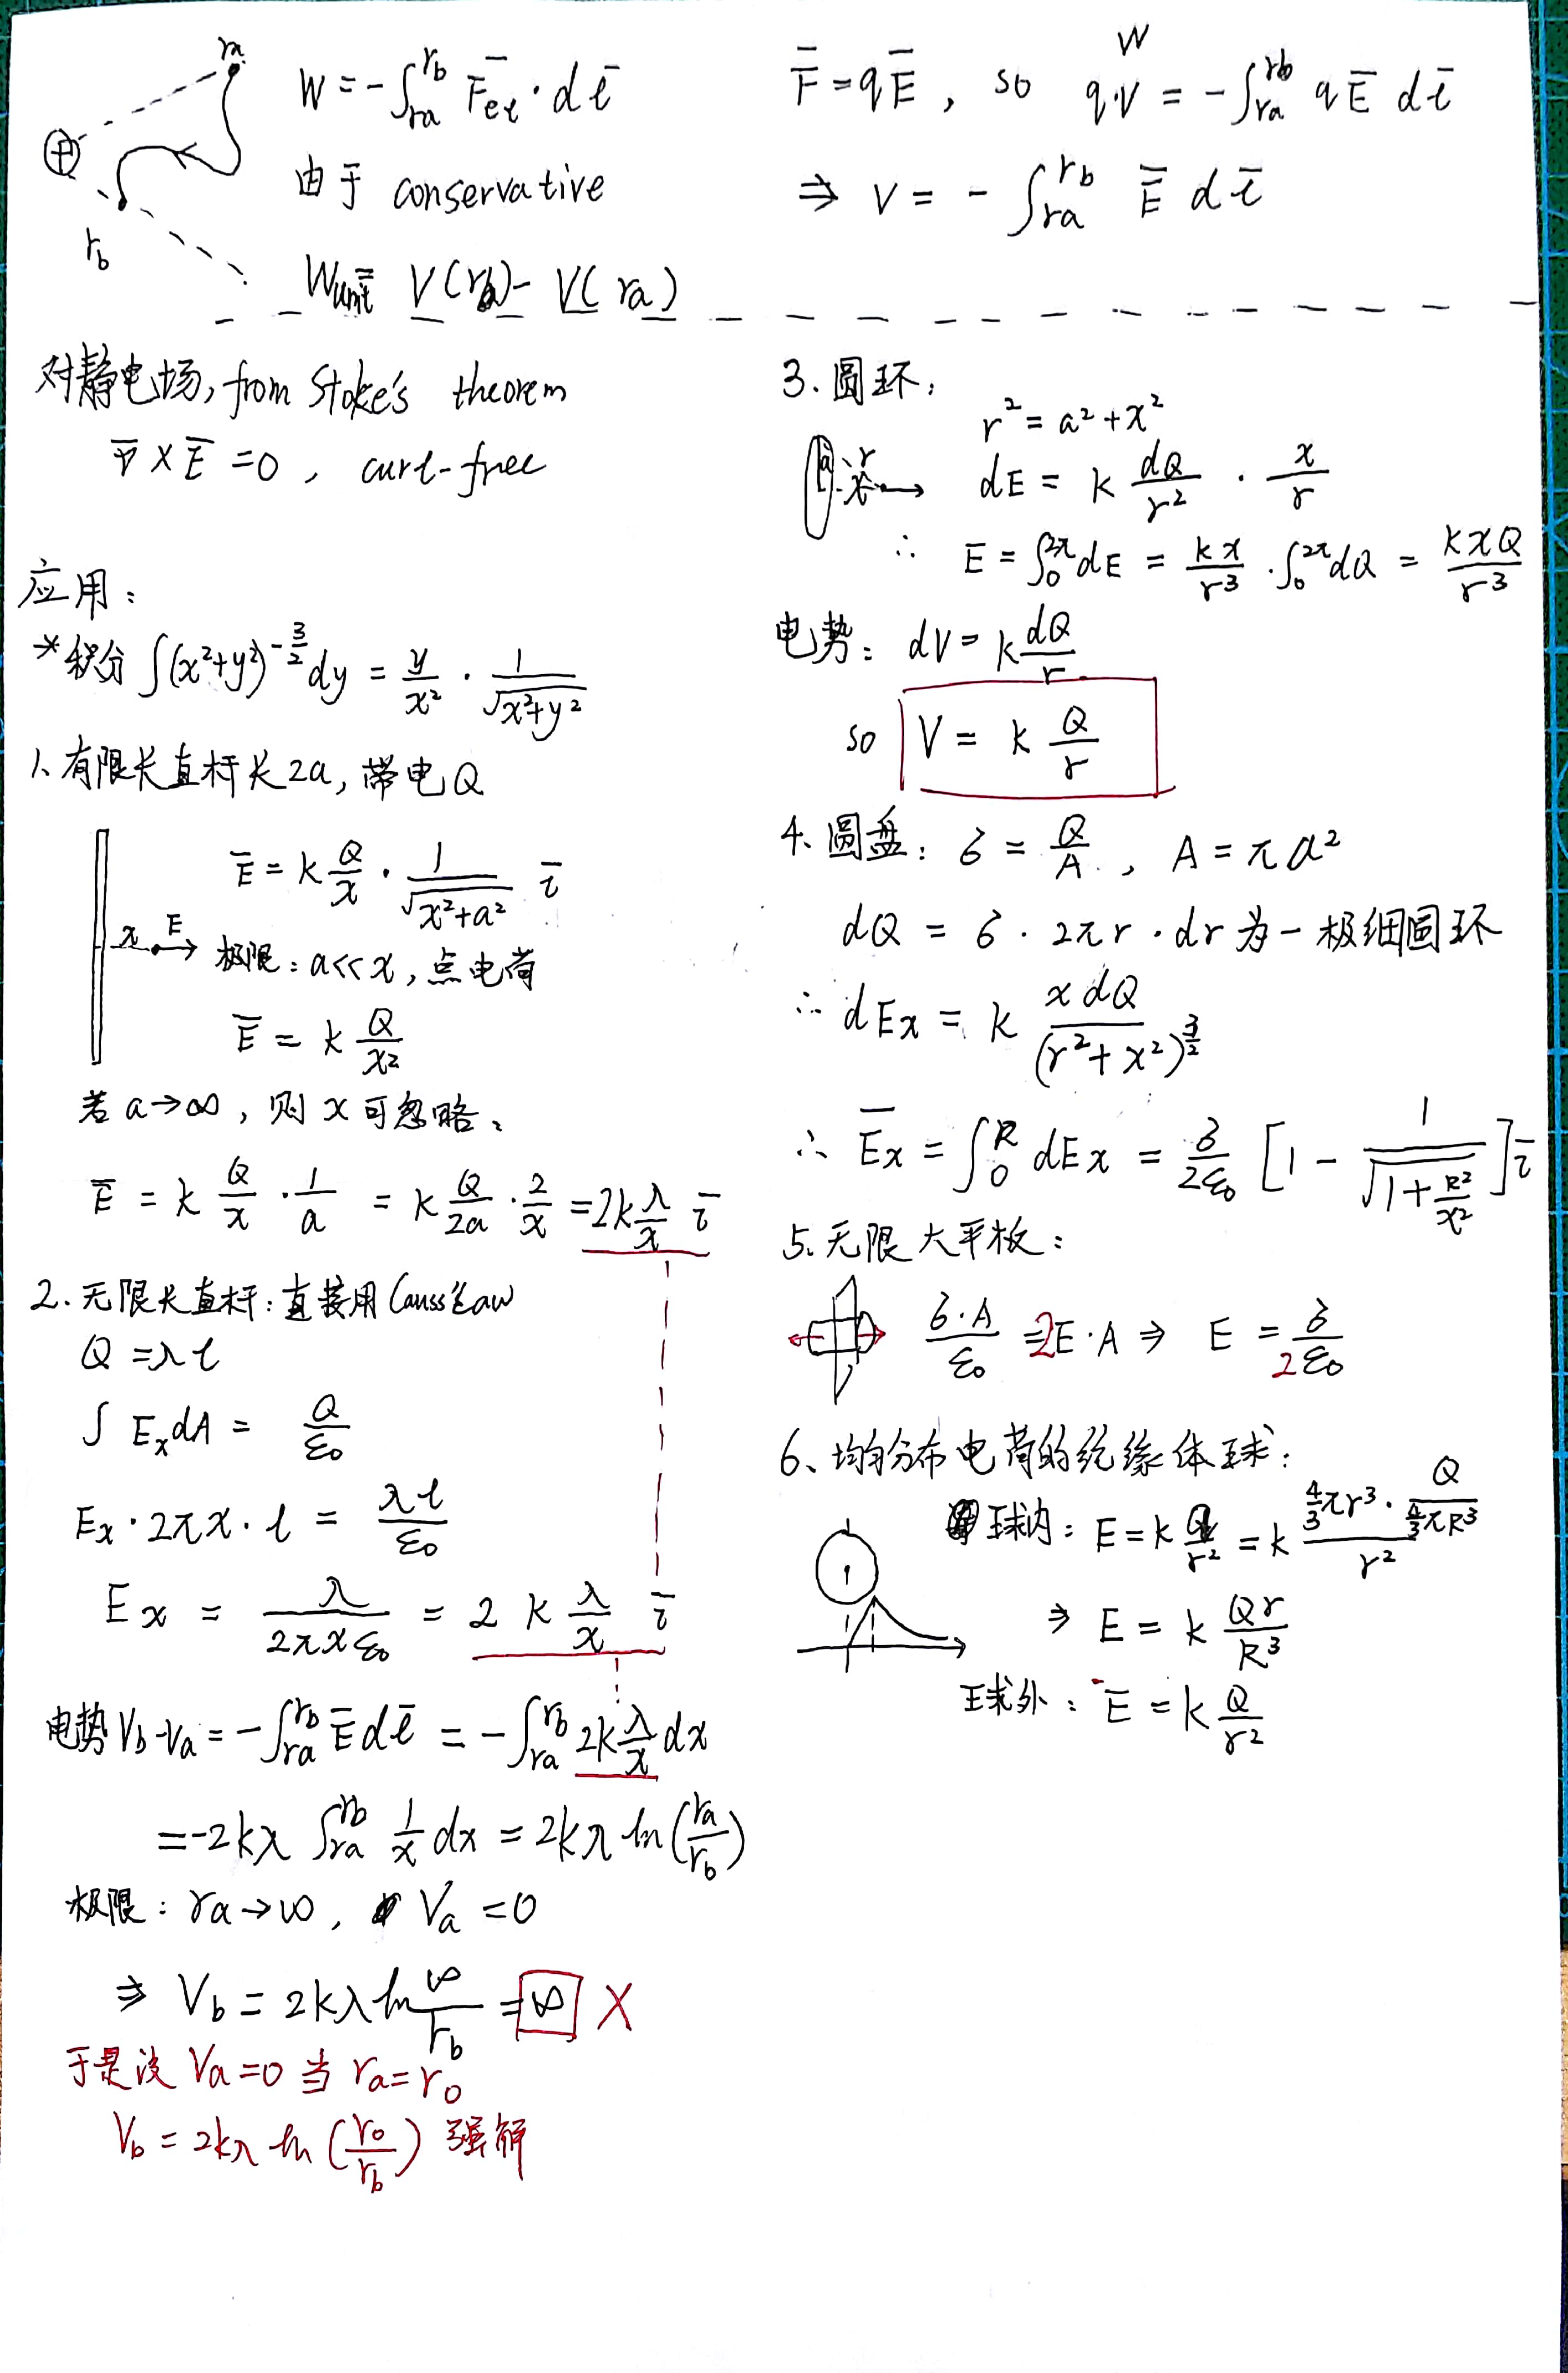 ra
rb
W = -∫_{ra}^{rb} F̄_{el} · dl̄
由于 conservative
W_unit = V(rb) - V(ra)
F̄ = qE̅, so q·V = -∫_{ra}^{rb} qE̅ dl̄
W
⇒ V = -∫_{ra}^{rb} E̅ dl̄
对静电场, from Stoke's theorem
∇̅ × E̅ = 0, curl-free
应用:
*积分 ∫(x²+y²)^{-3/2} dy = y/x² · 1/√(x²+y²)
1、有限长直杆长2a, 带电Q
E̅ = k Q/x · 1/√(x²+a²) ī
x E
极限: a<<x, 点电荷
E̅ = k Q/x²
若 a→∞, 则 x 可忽略、
E̅ = k Q/x · 1/a = k Q/2a · 2/x = 2k λ/x ī
2. 无限长直杆: 直接用 Gauss's Law
Q = λl
∫ E_x dA = Q/ε₀
E_x · 2πx · l = λl/ε₀
E_x = λ/(2πxε₀) = 2k λ/x ī
电势 Vb-Va = -∫_{ra}^{rb} E̅ dl̄ = -∫_{ra}^{rb} 2k λ/x dx
= -2kλ ∫_{ra}^{rb} 1/x dx = 2kλ ln(ra/rb)
极限: ra→∞, Va = 0
⇒ Vb = 2kλ ln ∞/rb = ∞ X
于是设 Va=0 当 ra=r₀
Vb = 2kλ ln(r₀/rb) 强解
3. 圆环:
r² = a² + x²
a r x
dE = k dQ/r² · x/r
∴ E = ∫₀^{2π} dE = kx/r³ · ∫₀^{2π} dQ = kxQ/r³
电势: dV = k dQ/r
so V = k Q/r
4、圆盘: σ = Q/A, A = πa²
dQ = σ · 2πr · dr 为一极细圆环
∴ dEx = k xdQ/(r²+x²)^{3/2}
∴ E̅x = ∫₀^R dEx = σ/2ε₀ [1 - 1/√(1+R²/x²)] ī
5、无限大平板:
σ·A/ε₀ = 2E·A ⇒ E = σ/2ε₀
6、均匀分布电荷的绝缘体球:
球内: E = k Q/r² = k (4/3 πr³ · Q/(4/3 πR³))/r²
⇒ E = k Qr/R³
球外: E = k Q/r²